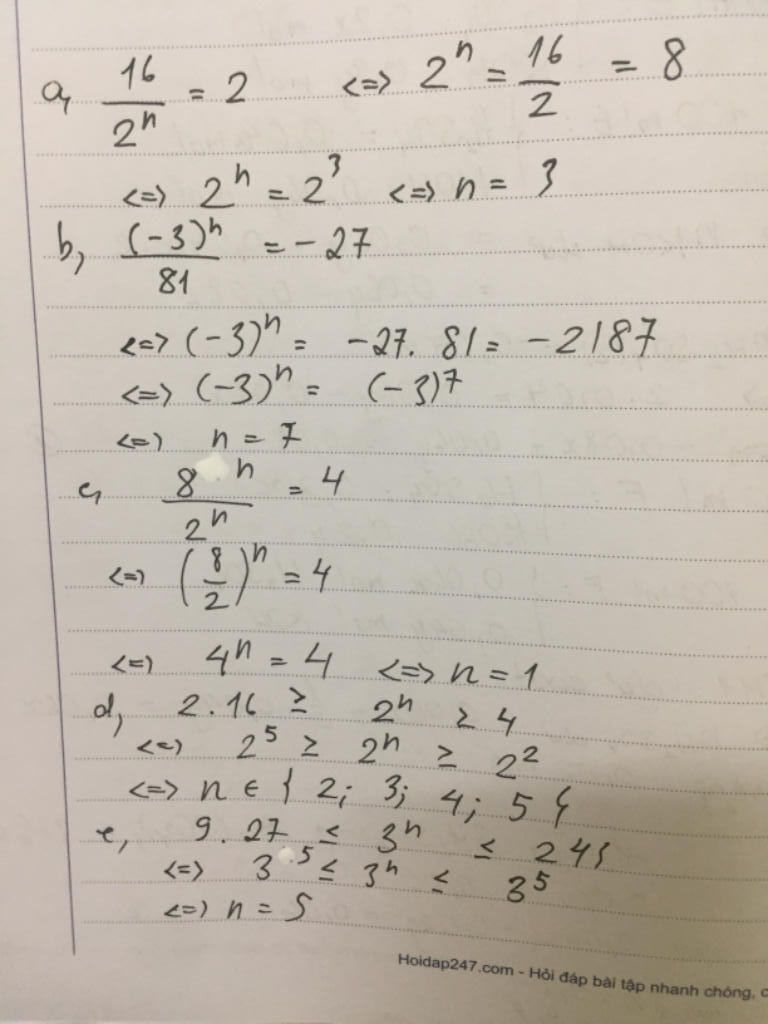 a, 16/2^n = 2 <=> 2^n = 16/2 = 8
<=> 2^n = 2^3 <=> n = 3
b, (-3)^n/81 = -27
<=> (-3)^n = -27. 81 = -2187
<=> (-3)^n = (-3)^7
<=> n = 7
c, 8^n/2^n = 4
<=> (8/2)^n = 4
<=> 4^n = 4 <=> n = 1
d, 2.16 ≥ 2^n ≥ 4
<=> 2^5 ≥ 2^n ≥ 2^2
<=> n ∈ { 2; 3; 4; 5 }
e, 9.27 ≤ 3^n ≤ 243
<=> 3^5 ≤ 3^n ≤ 3^5
<=> n = 5
Hoidap247.com - Hỏi đáp bài tập nhanh chóng, c